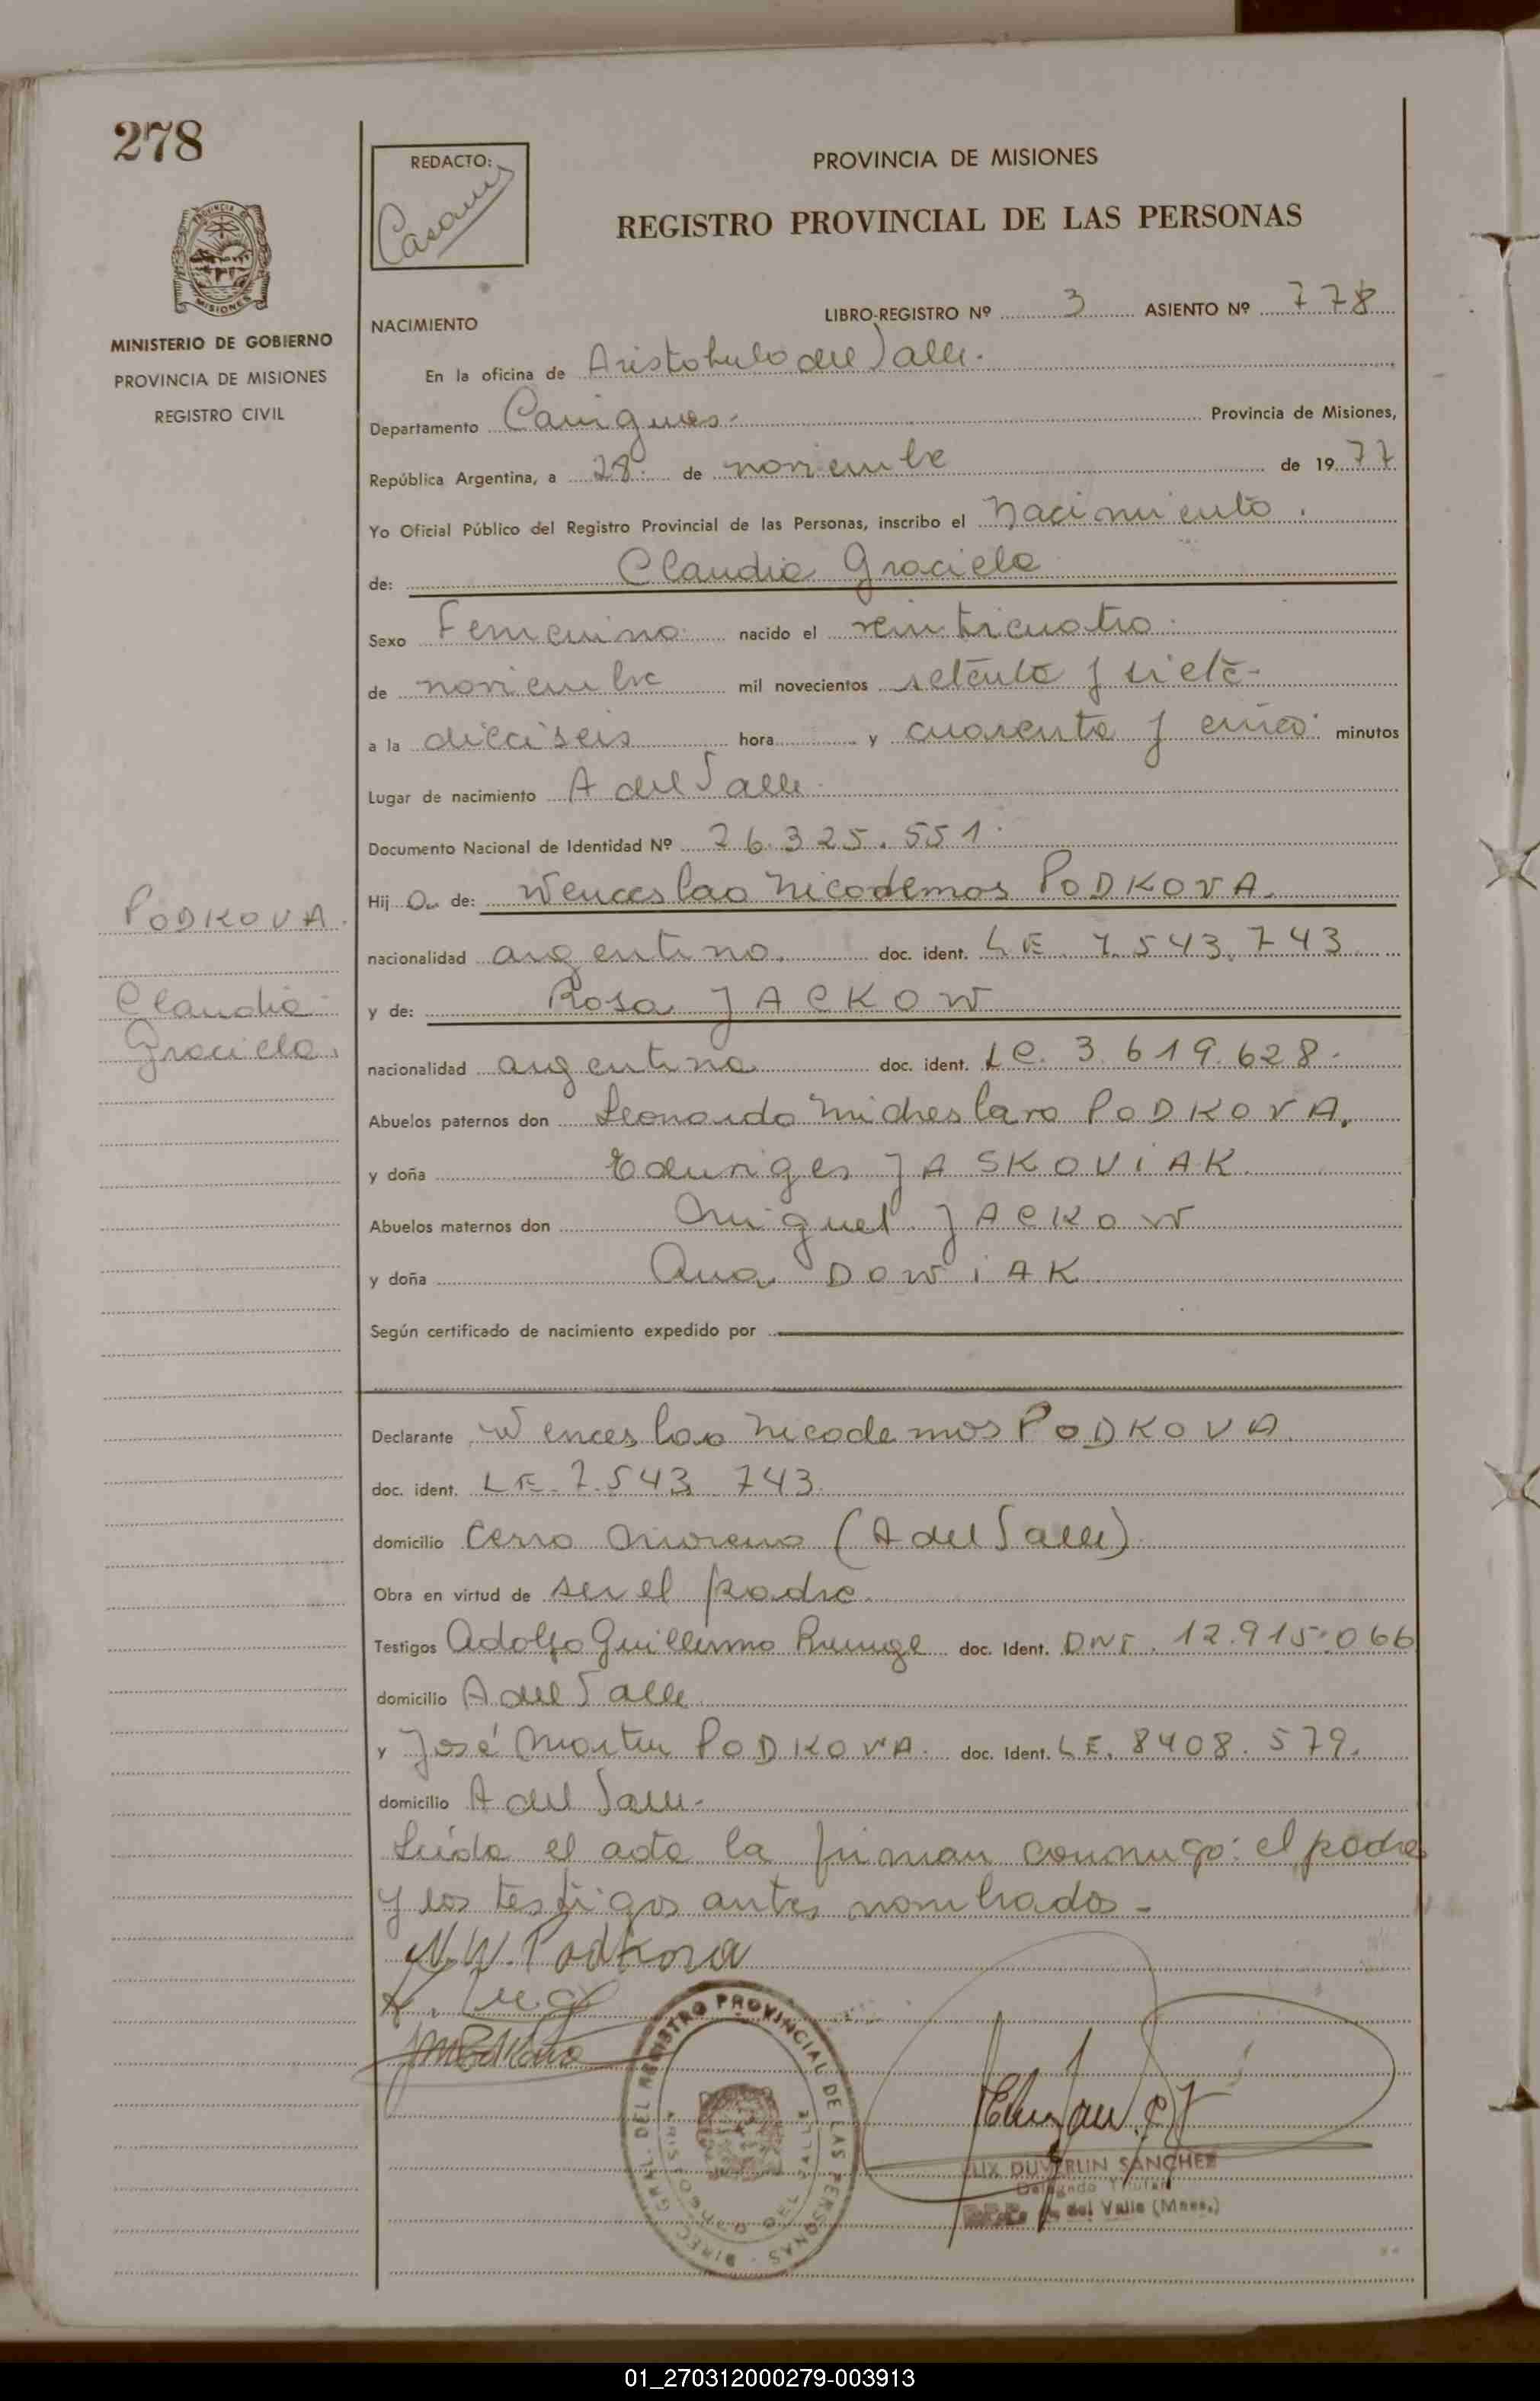 278
REDACTO:
PROVINCIA DE MISIONES
REGISTRO PROVINCIAL DE LAS PERSONAS
PROVINCIA DE
MISIONES
MINISTERIO DE GOBIERNO
PROVINCIA DE MISIONES
REGISTRO CIVIL
LIBRO-REGISTRO Nº 3 ASIENTO Nº 778
NACIMIENTO
En la oficina de Aristobulo del Valle.
Departamento Cainguas. Provincia de Misiones,
República Argentina, a 28. de noviembre de 1977
Yo Oficial Público del Registro Provincial de las Personas, inscribo el Nacimiento.
de: Claudia Graciela
Sexo Femenino. nacido el veinticuatro.
de noviembre mil novecientos setenta y siete-
a la dieciseis hora y cuarenta y cinco. minutos
Lugar de nacimiento A del Valle.
Documento Nacional de Identidad Nº 26.325.551.
Hij a de: Wenceslao Nicodemos PODKOVA.
nacionalidad argentino. doc. ident. LE. 7.543.743
y de: Rosa JACKOW
nacionalidad argentina doc. ident. LC. 3.619.628.
Abuelos paternos don Leonardo Micheslavo PODKOVA,
y doña Eduviges JASKOVIAK.
Abuelos maternos don Miguel JACKOW
y doña Ana DOWIAK
Según certificado de nacimiento expedido por
PODKOVA.
Claudia
Graciela.
Declarante Wenceslao Nicodemos PODKOVA.
doc. ident. LE. 7.543.743.
domicilio Cerro Moreno (A del Valle)
Obra en virtud de ser el padre.
Testigos Adolfo Guillermo Runge doc. Ident. DNI. 12.915.066
domicilio A del Valle
y José Martin PODKOVA. doc. Ident. LE. 8408.579.
domicilio A del Valle-
Leída el acta la firman conmigo: el padre
y los testigos antes nombrados-
N.W. Podkova
JMPodkova
DIREC. GRAL. DEL REGISTRO PROVINCIAL DE LAS PERSONAS
ARISTOBULO DEL VALLE
DUVERLIN SANCHEZ
Delegado Titular
A. del Valle (Mnes.)
01_270312000279-003913